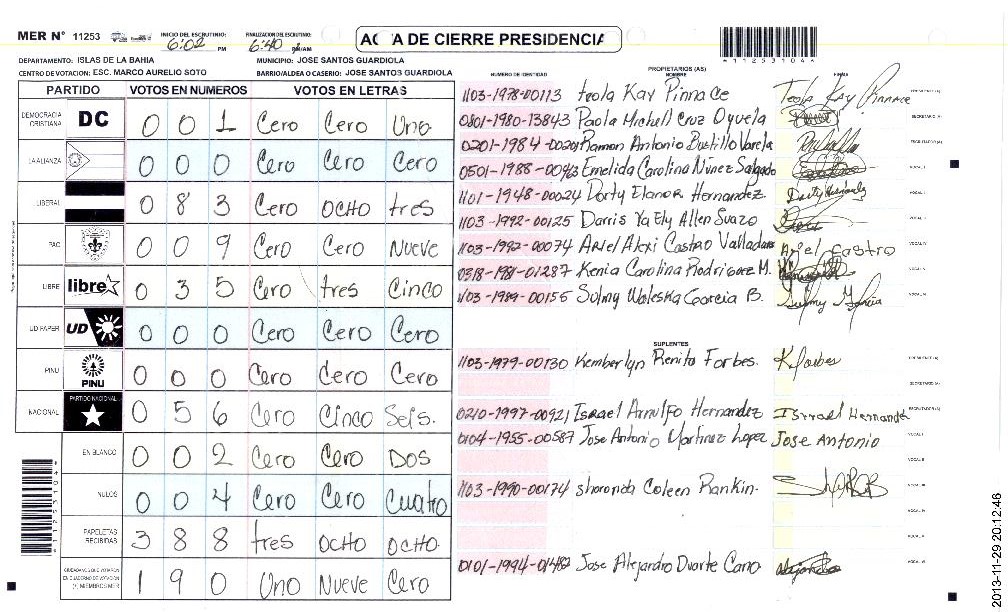 MER N° 11253
INICIO DEL ESCRUTINIO: 6:02 PM
FINALIZACION DEL ESCRUTINIO: 6:40 PM/AM
ACTA DE CIERRE PRESIDENCIA
DEPARTAMENTO: ISLAS DE LA BAHIA
MUNICIPIO: JOSE SANTOS GUARDIOLA
CENTRO DE VOTACION: ESC. MARCO AURELIO SOTO
BARRIO/ALDEA O CASERIO: JOSE SANTOS GUARDIOLA
*11253104*
PARTIDO VOTOS EN NUMEROS VOTOS EN LETRAS
DEMOCRACIA CRISTIANA DC 0 0 1 Cero Cero Uno
LA ALIANZA 0 0 0 Cero Cero Cero
LIBERAL 0 8 3 Cero OCHO tres
PAC 0 0 9 Cero Cero Nueve
LIBRE libre 0 3 5 Cero tres Cinco
UD FAPER UD 0 0 0 Cero Cero Cero
PINU PINU 0 0 0 Cero Cero Cero
NACIONAL PARTIDO NACIONAL 0 5 6 Cero Cinco Seis.
EN BLANCO 0 0 2 Cero Cero DOS
NULOS 0 0 4 Cero Cero Cuatro
PAPELETAS RECIBIDAS 3 8 8 tres OCHO OCHO
CIUDADANOS QUE VOTARON EN CUADERNO DE VOTACION (+) MIEMBROS MER 1 9 0 Uno Nueve Cero
NUMERO DE IDENTIDAD PROPIETARIOS (AS) NOMBRE FIRMAS
1103-1978-00113 teola Kay Pinnace Teola Kay Pinnace PRESIDENTE (A)
0801-1980-13843 Paola Michell Cruz Oyuela SECRETARIO (A)
0201-1984-00201 Ramon Antonio Bustillo Varela ESCRUTADOR (A)
0501-1988-00463 Emelida Carolina Nunez Salgado VOCAL I
1101-1948-00024 Dorty Elanor Hernandez. Dorty Hernandez VOCAL II
1103-1992-00125 Darris Ya Ely Allen Suazo VOCAL III
1103-1992-00074 Ariel Alexi Castro Valladares Ariel Castro VOCAL IV
0318-1981-01287 Kenia Carolina Rodriguez M. VOCAL V
1103-1989-00155 Sulmy Waleska Garcia B. Sulmy Garcia VOCAL VI
SUPLENTES
1103-1979-00130 Kemberlyn Renita Forbes. K forbes PRESIDENTE (A)
SECRETARIO (A)
0210-1997-00921 Israel Arnulfo Hernandez Isrrael Hernandez ESCRUTADOR (A)
0104-1955-00587 Jose Antonio Martinez Lopez Jose Antonio VOCAL I
VOCAL II
1103-1990-00174 sharonda Coleen Rankin. VOCAL III
VOCAL IV
VOCAL V
0101-1994-01482 Jose Alejandro Duarte Cano Alejandro VOCAL VI
*11253104*
2013-11-29 20:12:46